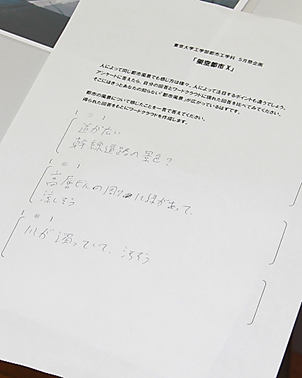 東京大学工学部都市工学科 5月祭企画
「架空都市X」
人によって同じ都市風景でも感じ方は様々。人によって注目するポイントも違うでしょう。
アンケートに答えたら、自分の回答とワードクラウドに現れた回答を比べてみてください。
そこにはきっとあなたの知らない"都市風景"が広がっているはずです。
都市の風景について感じたことを一言で答えてください。
得られた回答をもとにワードクラウドを作成します。
道が広い
幹線道路の景色?
高層ビルの周りに緑があって、
涼しそう
川が濁っていて、汚そう